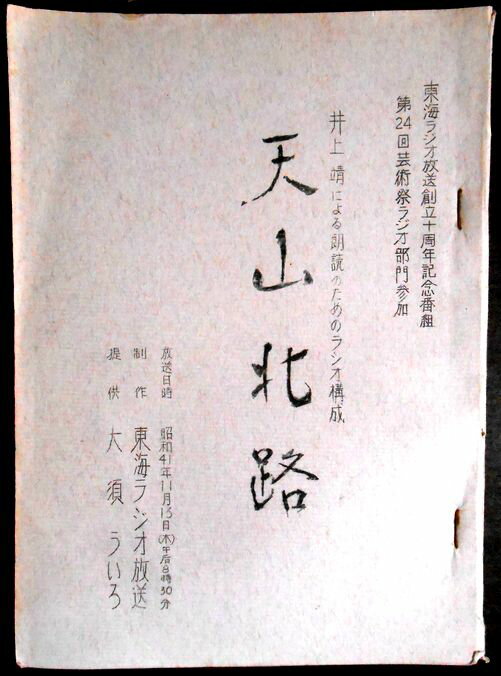 東海ラジオ放送創立十周年記念番組
第24回芸術祭ラジオ部門参加
井上靖による朗読のためのラジオ構成
天山北路
放送日時 昭和41年11月13日(木)午后8時30分
制作 東海ラジオ放送
提供 大須ういろ